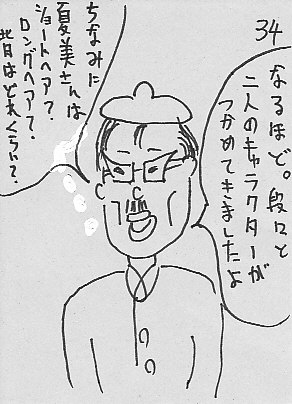 34
なるほど。段々と
二人のキャラクターが
つかめてきましたよ
ちなみに
夏美さんは
ショートヘア？
ロングヘア？
背はどれくらい？